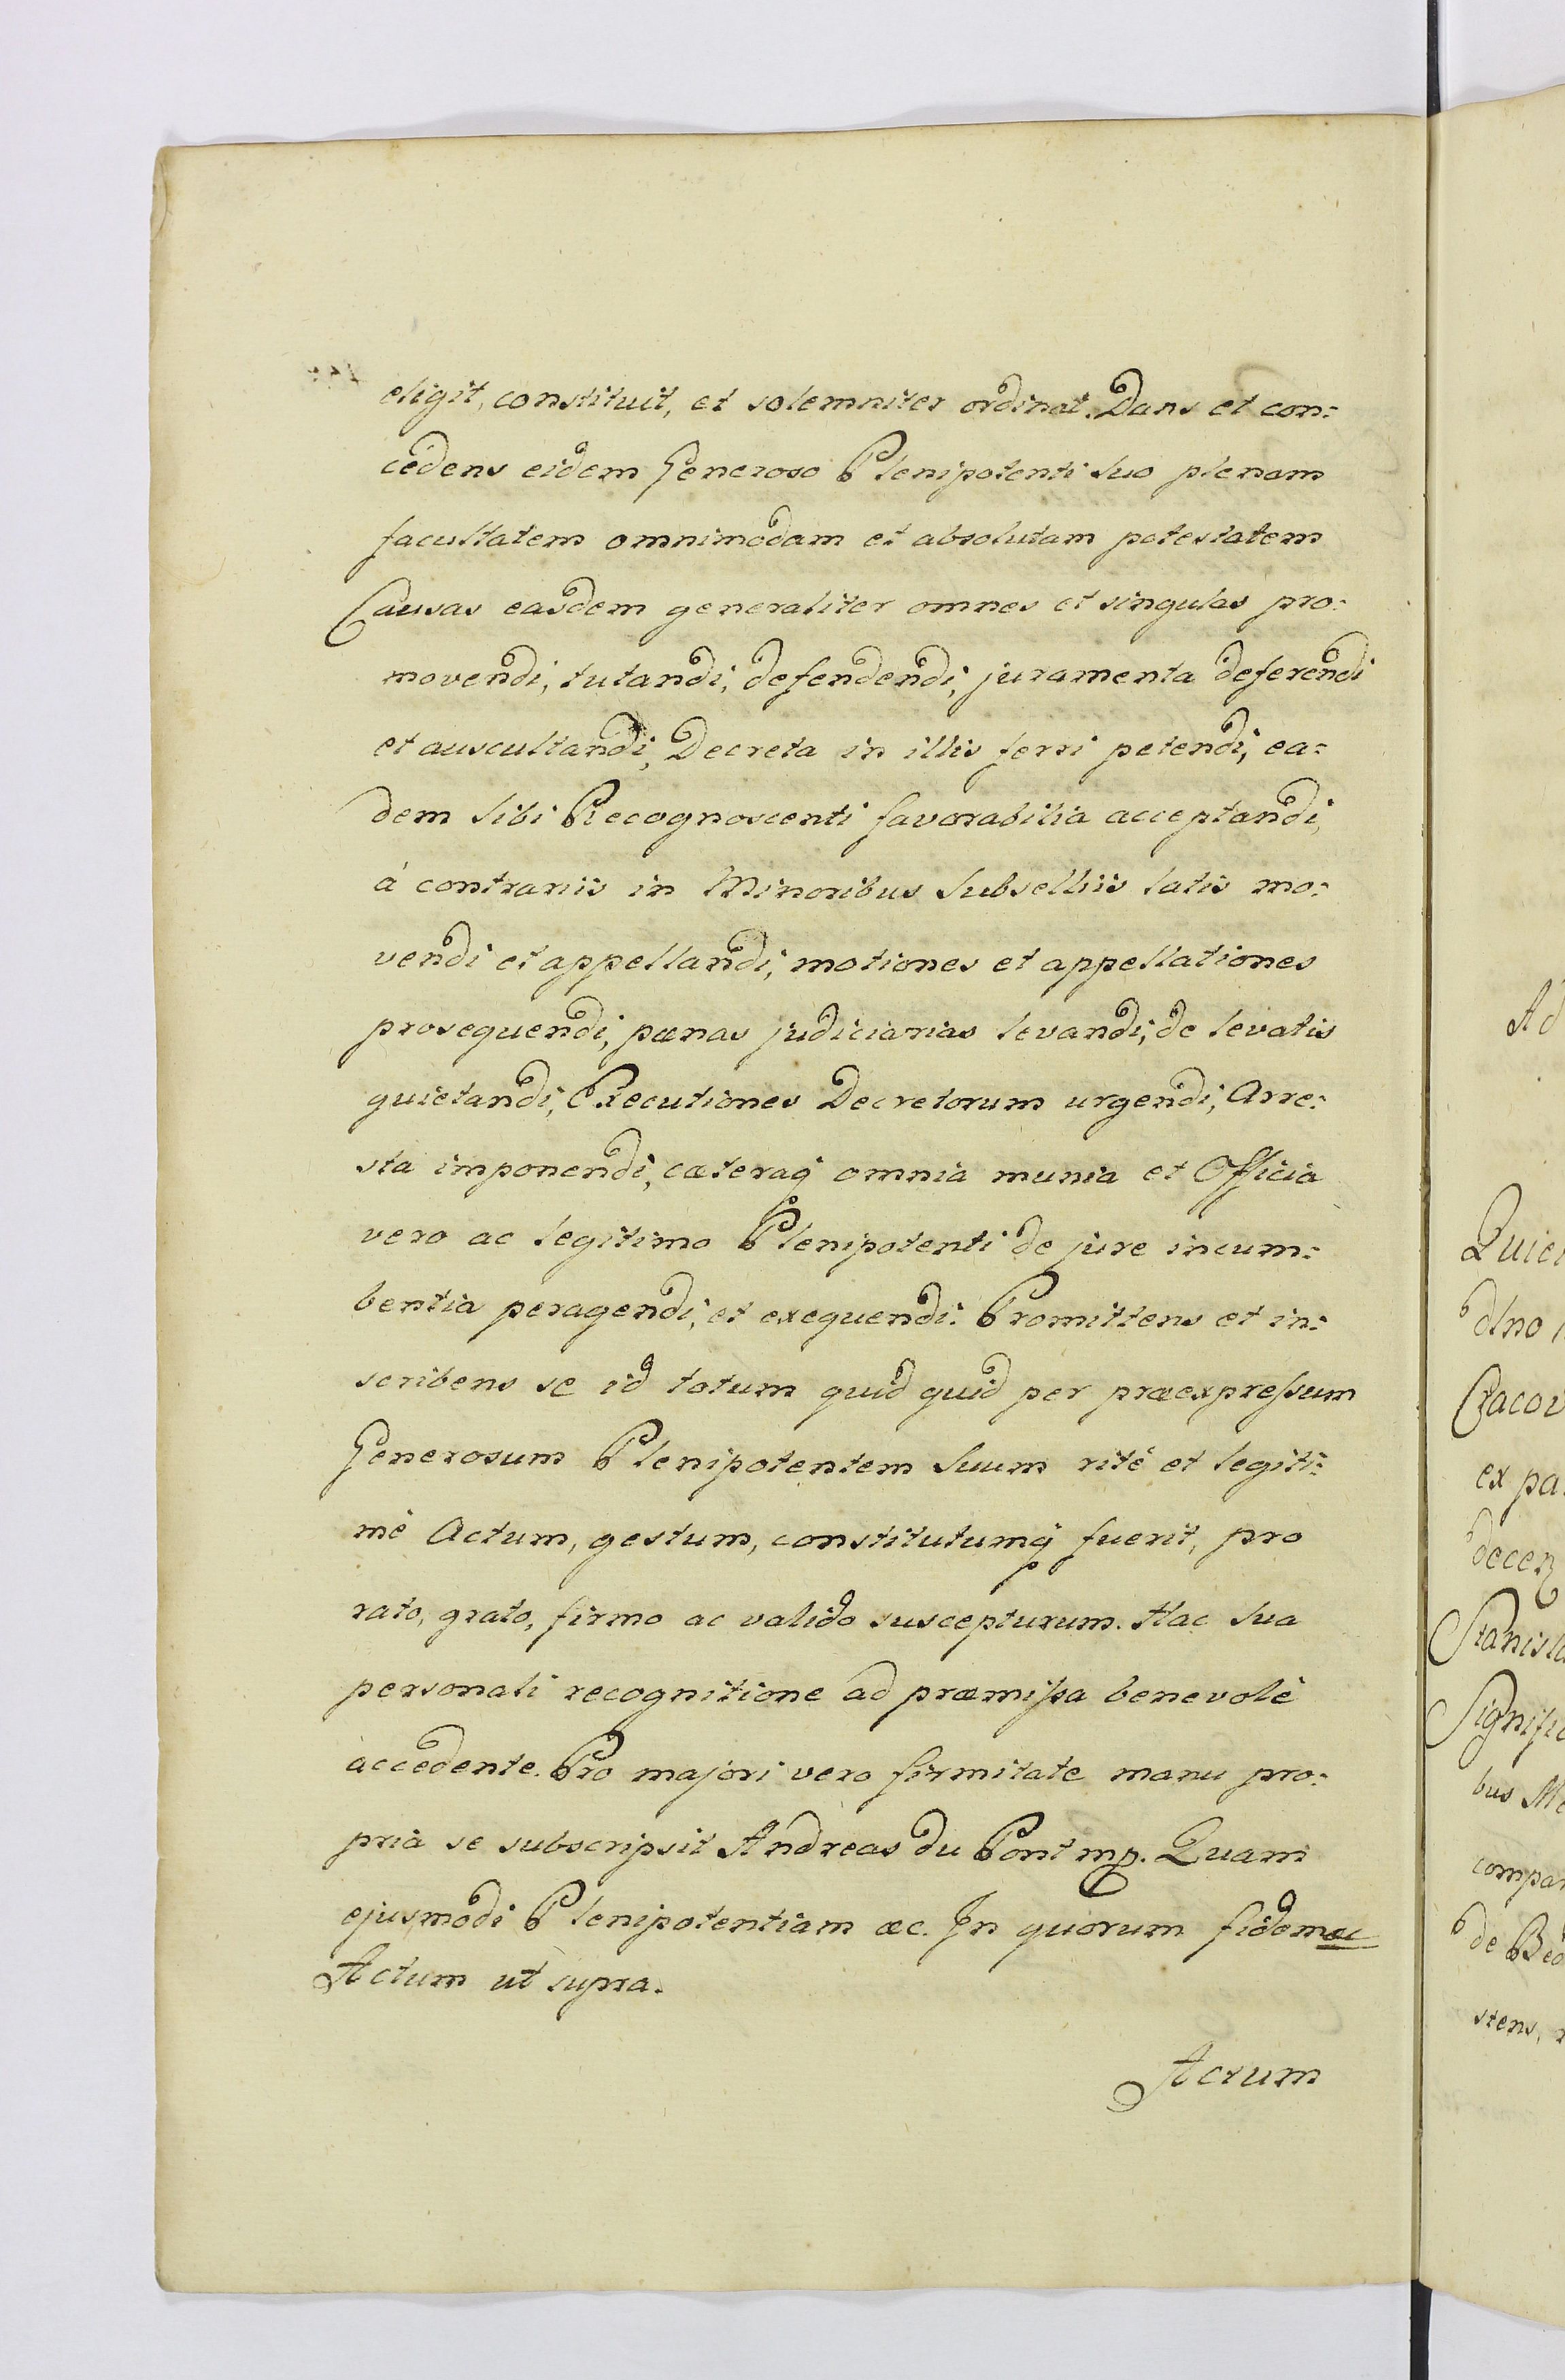 eligit, constituit, et solemniter ordinat. Dans et con:
cedens eidem Generoso Plenipotenti suo plenam
facultatem omnimodam et absolutam potestatem
Causas easdem generaliter omnes et singulas pro:
movendi, tutandi, defendendi, juramenta deferendi
et auscultandi, Decreta in illis ferri petendi, ea:
dem sibi Recognoscenti favorabilia acceptandi,
à contrariis in Minoribus Subselliis latis mo:
vendi et appellandi, motiones et appellationes
prosequendi, pænas judiciarias levandi, de levatis
quietandi, Executiones Decretorum urgendi, Arre:
sta imponendi, cæteraq omnia munia et Officia
vero ac legitimo Plenipotenti de jure incum:
bentia peragendi, et exequendi. Promittens et in:
scribens se id totum quid quid per præexpreſsum
Generosum Plenipotentem Suum ritè et legiti:
mè Actum, gestum, constitutumq fuerit, pro
rato, grato, firmo ac valido suscepturum. Hac sua
personali recognitione ad præmiſsa benevolè
accedente. Pro majori vero firmitate manu pro:
pria se subscripsit Andreas du Pont mp. Quam
ejusmodi Plenipotentiam æc. In quorum fidem æc
Actum ut supra.
Actum
Ad
Quie
dlno
Cracov
ex pa
decer
Stanisla
Signific
bus
compar
de
stens,